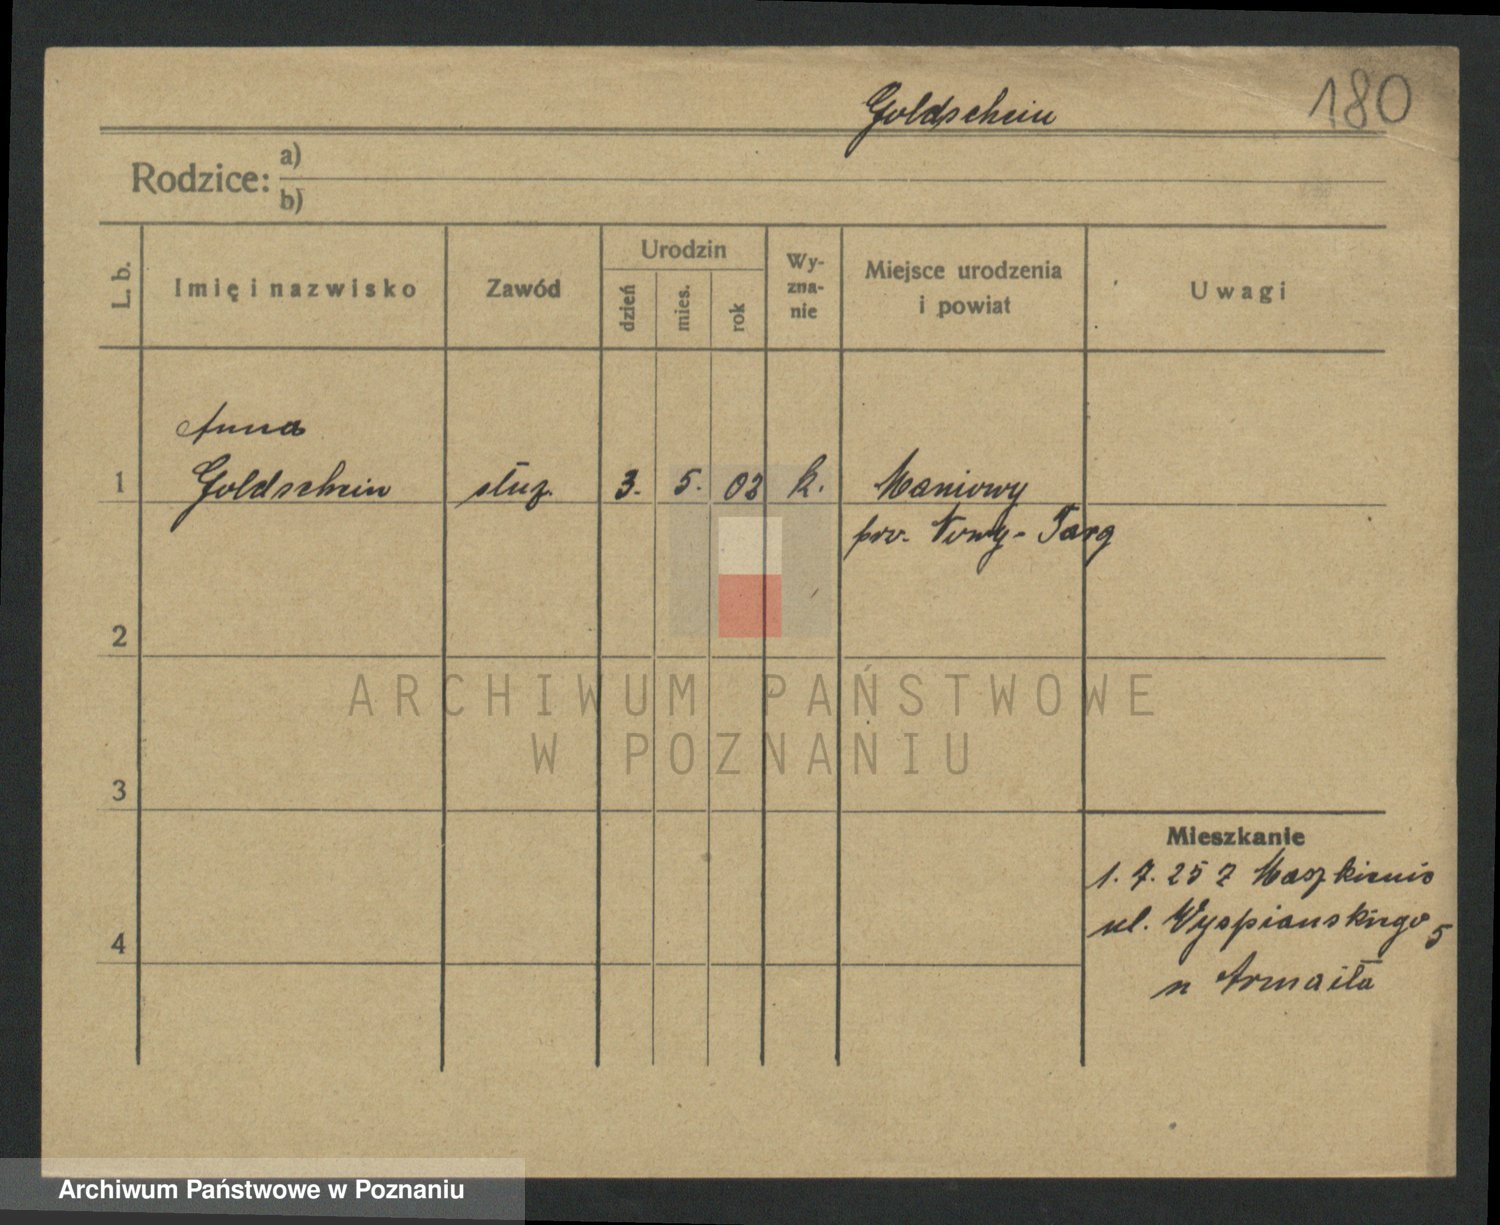 Goldschein
180
Rodzice:
a)
b)
L. b.
Imię i nazwisko
Zawód
Urodzin
dzień
mies.
rok
Wy-
zna-
nie
Miejsce urodzenia
i powiat
Uwagi
Anna
1 Goldschein służ. 3. 5. 03 k. Maniowy
pow. Nowy-Targ
2
ARCHIWUM PAŃSTWOWE
W POZNANIU
3
Mieszkanie
1. 7. 25 z
ul. Wyspianskiego 5
4
Archiwum Państwowe w Poznaniu